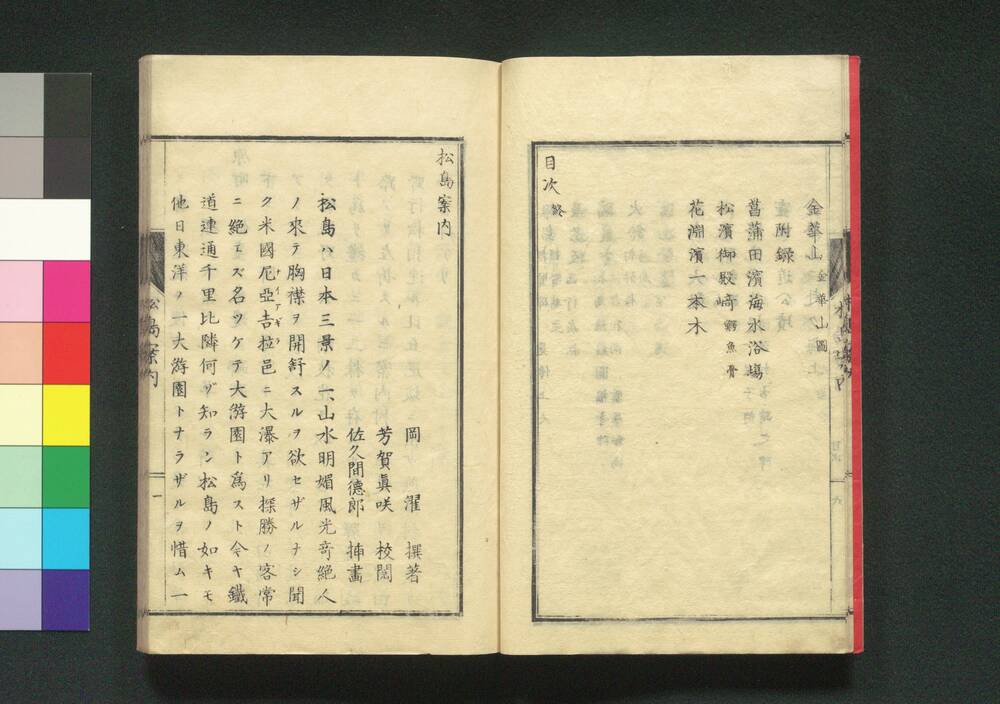 金華山 金華山圖
附録
菖蒲田濱海水浴場
松濱御殿崎 鰐魚骨
花淵濱一本木
目次 終
松島案内
岡 濯 撰著
芳賀眞咲 校閲
佐久間德郎 挿畵
松島ハ日本三景ノ一山水明媚風光奇絶人
ノ來テ胸襟ヲ開舒スルヲ欲セザルナシ聞
ク米國尼亞吉拉邑ニ大瀑アリ探勝ノ客常
ニ絶エズ名ツケテ大游園ト爲スト今ヤ鐵
道連通千里比隣何ゾ知ラン松島ノ如キモ
他日東洋ノ一大游園トナラザルヲ惜ム一
松島案内
一